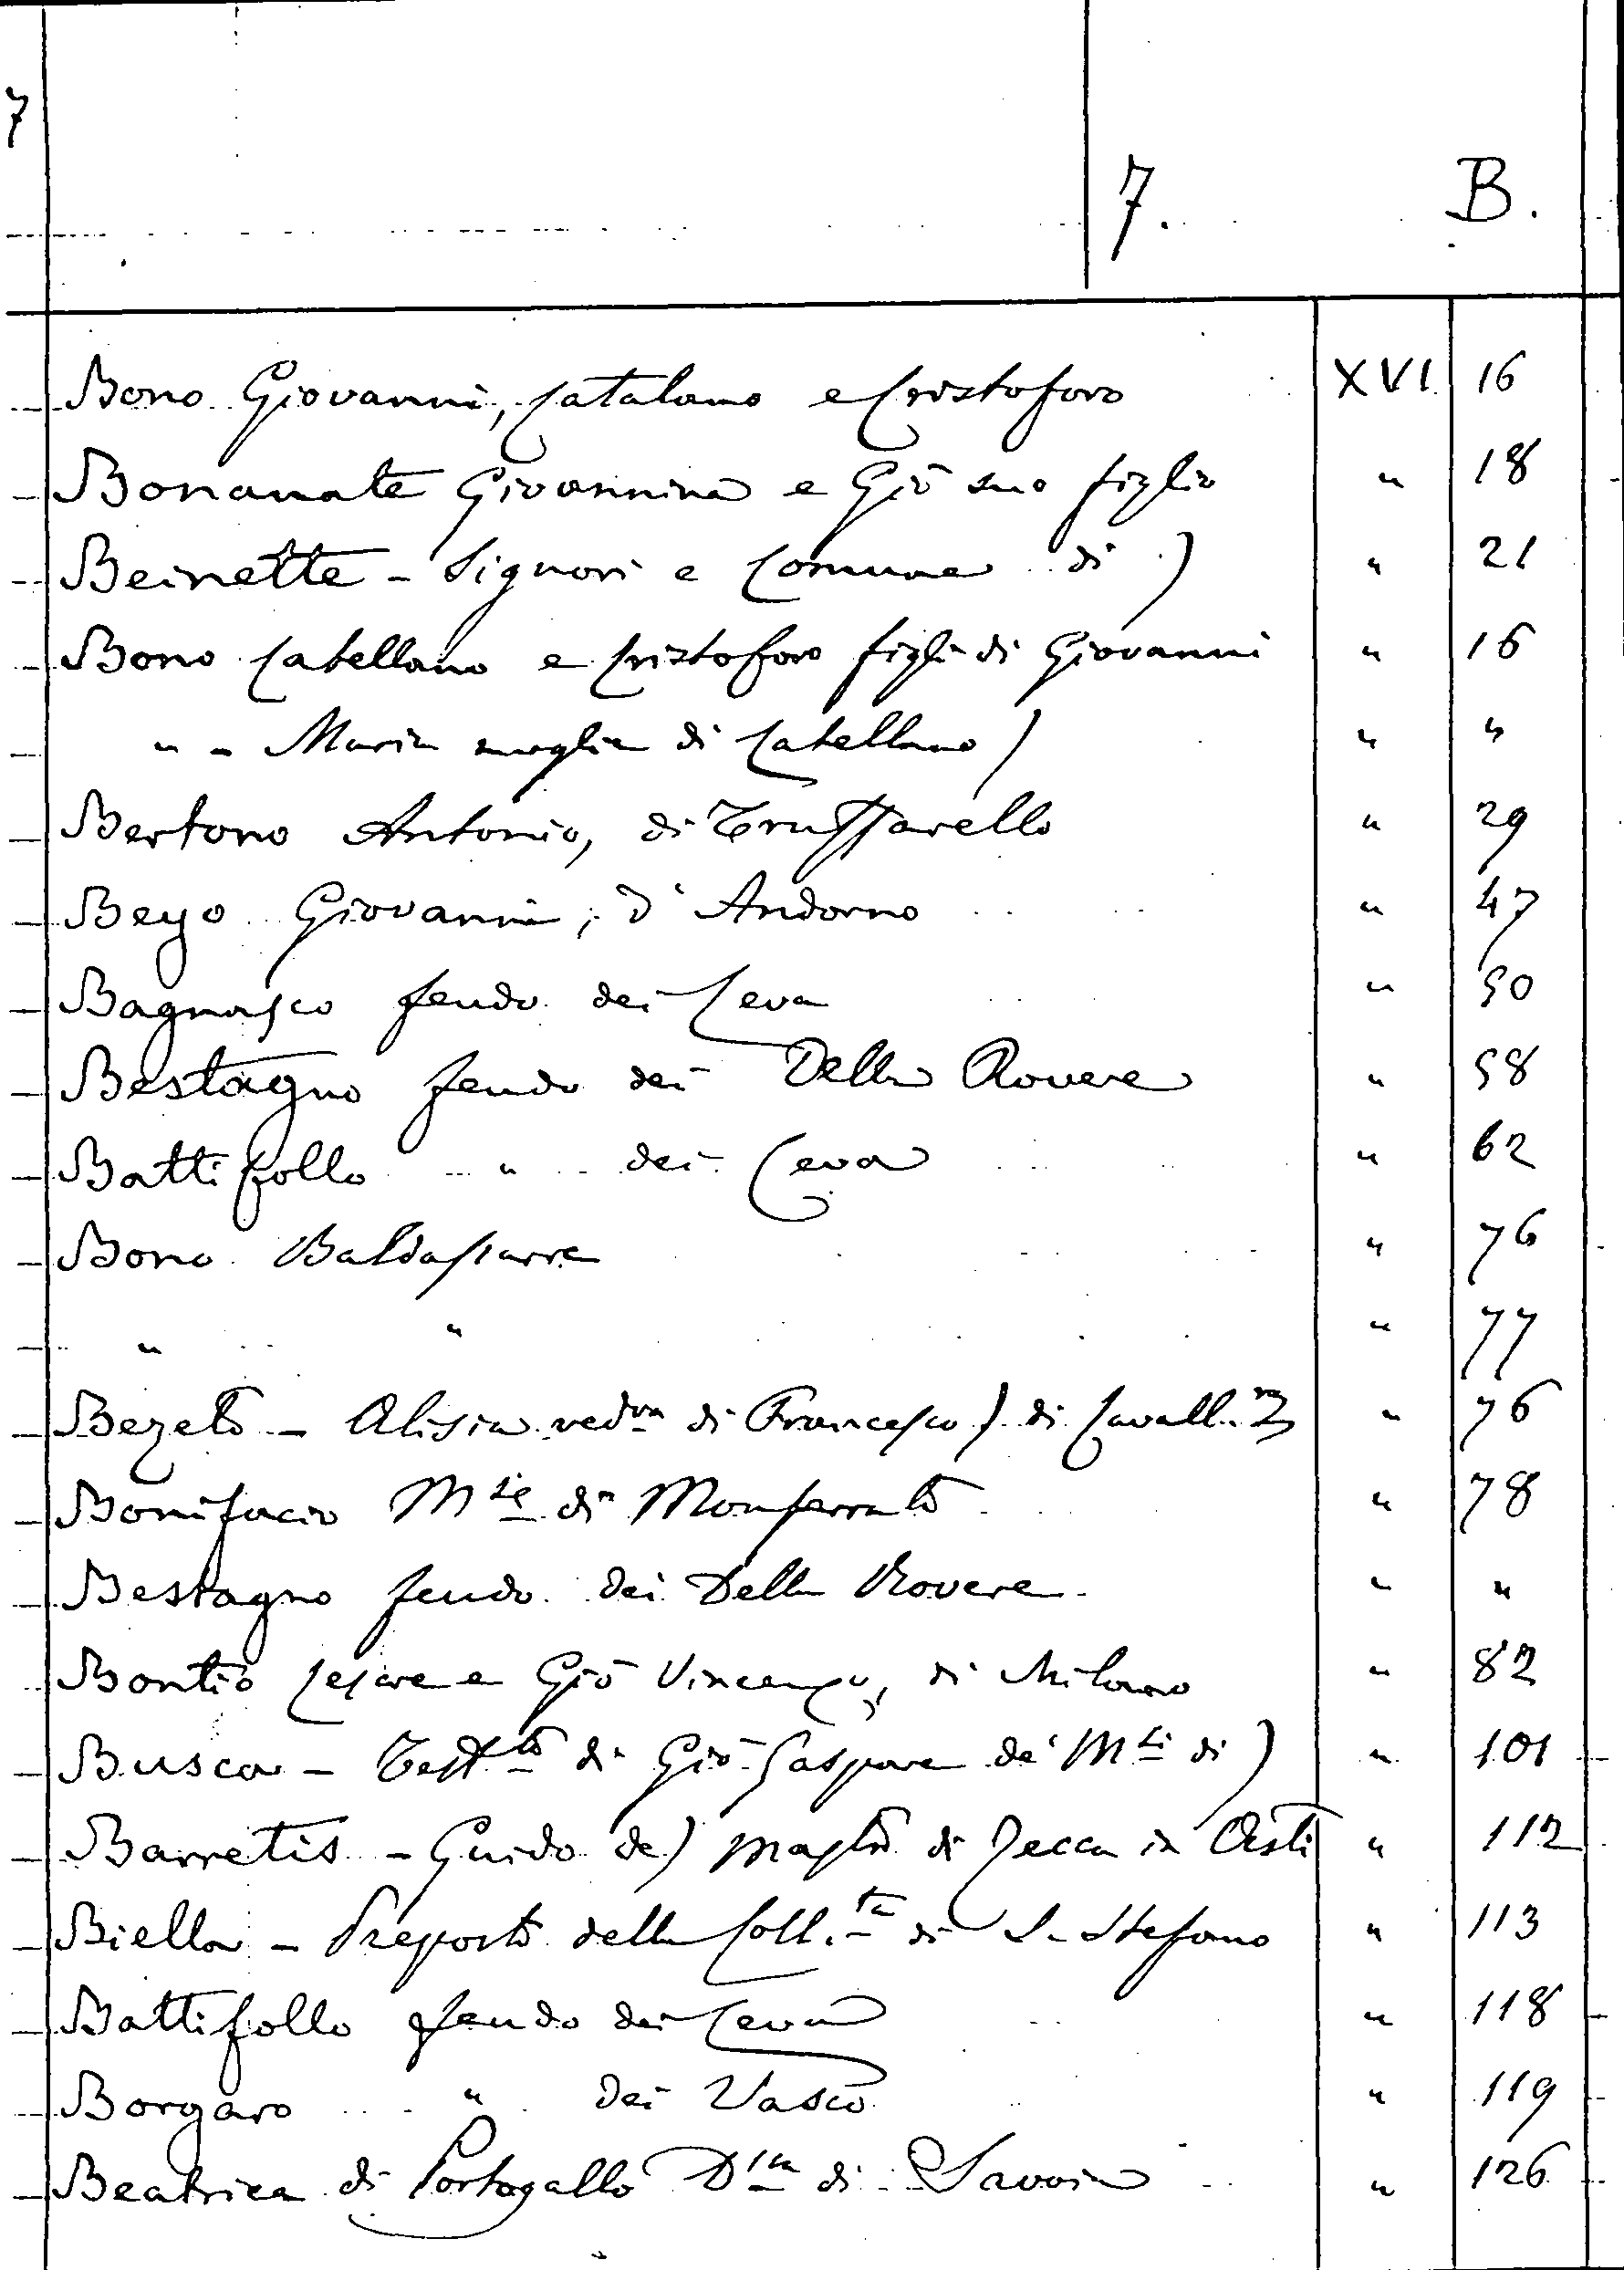 7
7. B.
Bono Giovanni, Catalano e Cristoforo XVI 16
Bonanate Giovannina e Giō suo figlio " 18
Beinette - Signori e Comune di ) " 21
Bono Catellano e Cristoforo figli di Giovanni " 16
" - Maria moglie di Catellano ) " "
Bertono Antonio, di Truffarello " 29
Beyo Giovanni, d'Andorno " 47
Bagnasco feudo dei Ceva " 50
Bestagno feudo dei Della Rovere " 58
Battifollo " dei Ceva " 62
Bono Baldassarre " 76
" " " 77
Bezeto - Alisia ved.va di Francesco ) di Cavall. " 76
Bonifacio M.se di Monferrato " 78
Bestagno feudo dei Della Rovere " "
Bontio Cesare e Giō Vincenzo, di Milano " 82
Busca - Test.to di Giō Gaspare de' M.si di ) " 101
Barretis - Guido de ) mastro di Zecca in Asti " 112
Biella - Preposto della Coll.ta di S. Stefano " 113
Battifollo feudo dei Ceva " 118
Borgaro " dei Vasco " 119
Beatrice di Portogallo D.ssa di Savoia " 126